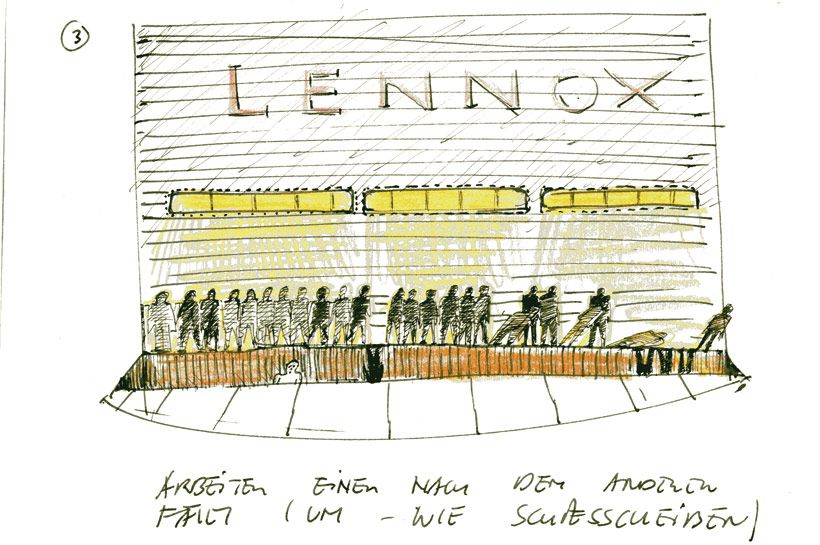 3
LENNOX
ARBEITER EINER NACH DEM ANDEREN
FÄLLT (UM - WIE SCHIESSCHEIBEN)